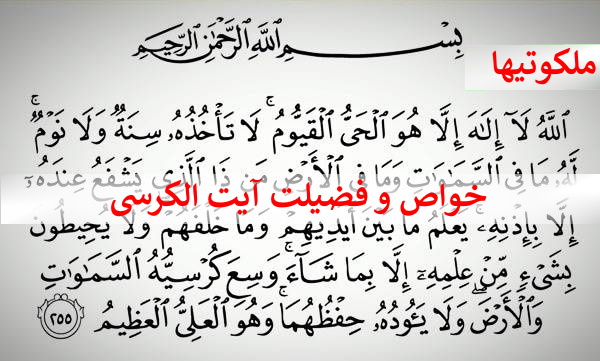 بِسْمِ اللَّهِ الرَّحْمَٰنِ الرَّحِيمِ
ملکوتیها
اللَّهُ لَآ إِلَٰهَ إِلَّا هُوَ الْحَيُّ الْقَيُّومُ ۚ لَا تَأْخُذُهُۥ سِنَةٌ وَلَا نَوْمٌ ۚ
لَّهُۥ مَا فِى السَّمَٰوَاتِ وَمَا فِى الْأَرْضِ مَن ذَا الَّذِى يَشْفَعُ عِندَهُۥٓ
خواص و فضیلت آیت الکرسی
إِلَّا بِإِذْنِهِۦ ۚ يَعْلَمُ مَا بَيْنَ أَيْدِيهِمْ وَمَا خَلْفَهُمْ وَلَا يُحِيطُونَ
بِشَىْءٍ مِّنْ عِلْمِهِۦٓ إِلَّا بِمَا شَآءَ ۚ وَسِعَ كُرْسِيُّهُ السَّمَٰوَاتِ
وَالْأَرْضَ ۖ وَلَا يَـُٔودُهُۥ حِفْظُهُمَا ۚ وَهُوَ الْعَلِىُّ الْعَظِيمُ ٢٥٥